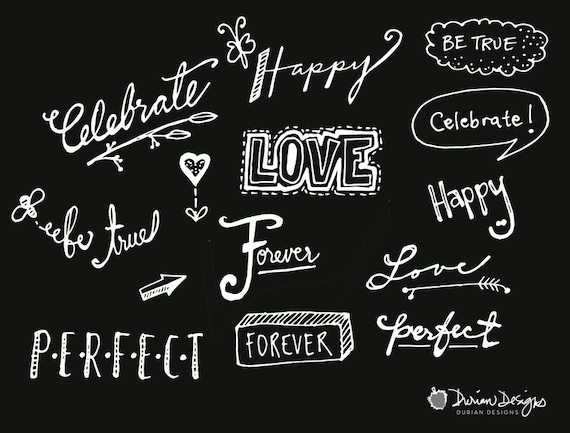 Celebrate
Happy
BE TRUE
LOVE
Celebrate!
be true
Happy
Forever
Love
P·E·R·F·E·C·T
FOREVER
perfect
Durian Designs
DURIAN DESIGNS